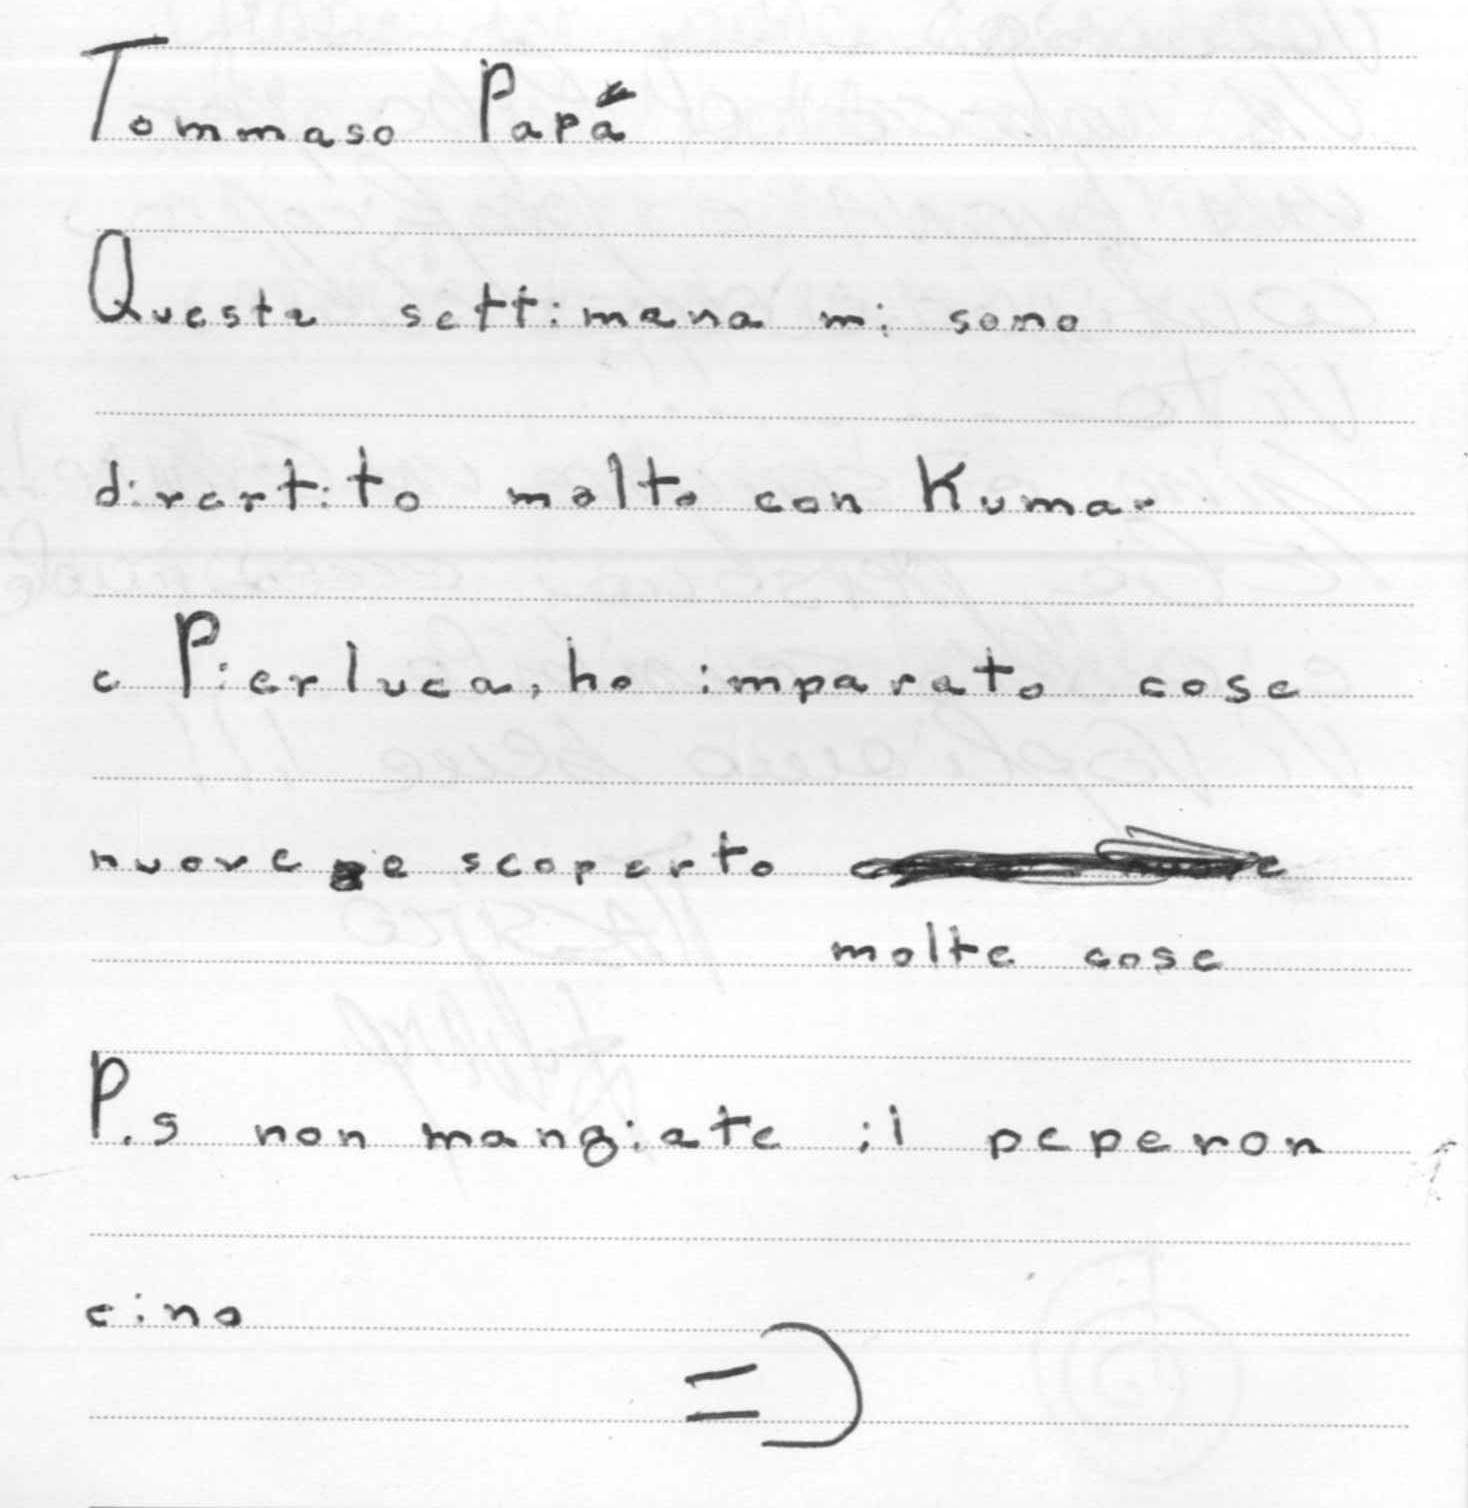 Tommaso Papá
Questa settimana mi sono
divertito molto con Kumar
e Pierluca, ho imparato cose
nuove e scoperto
molte cose
P.s non mangiate il peperon
cino
=)